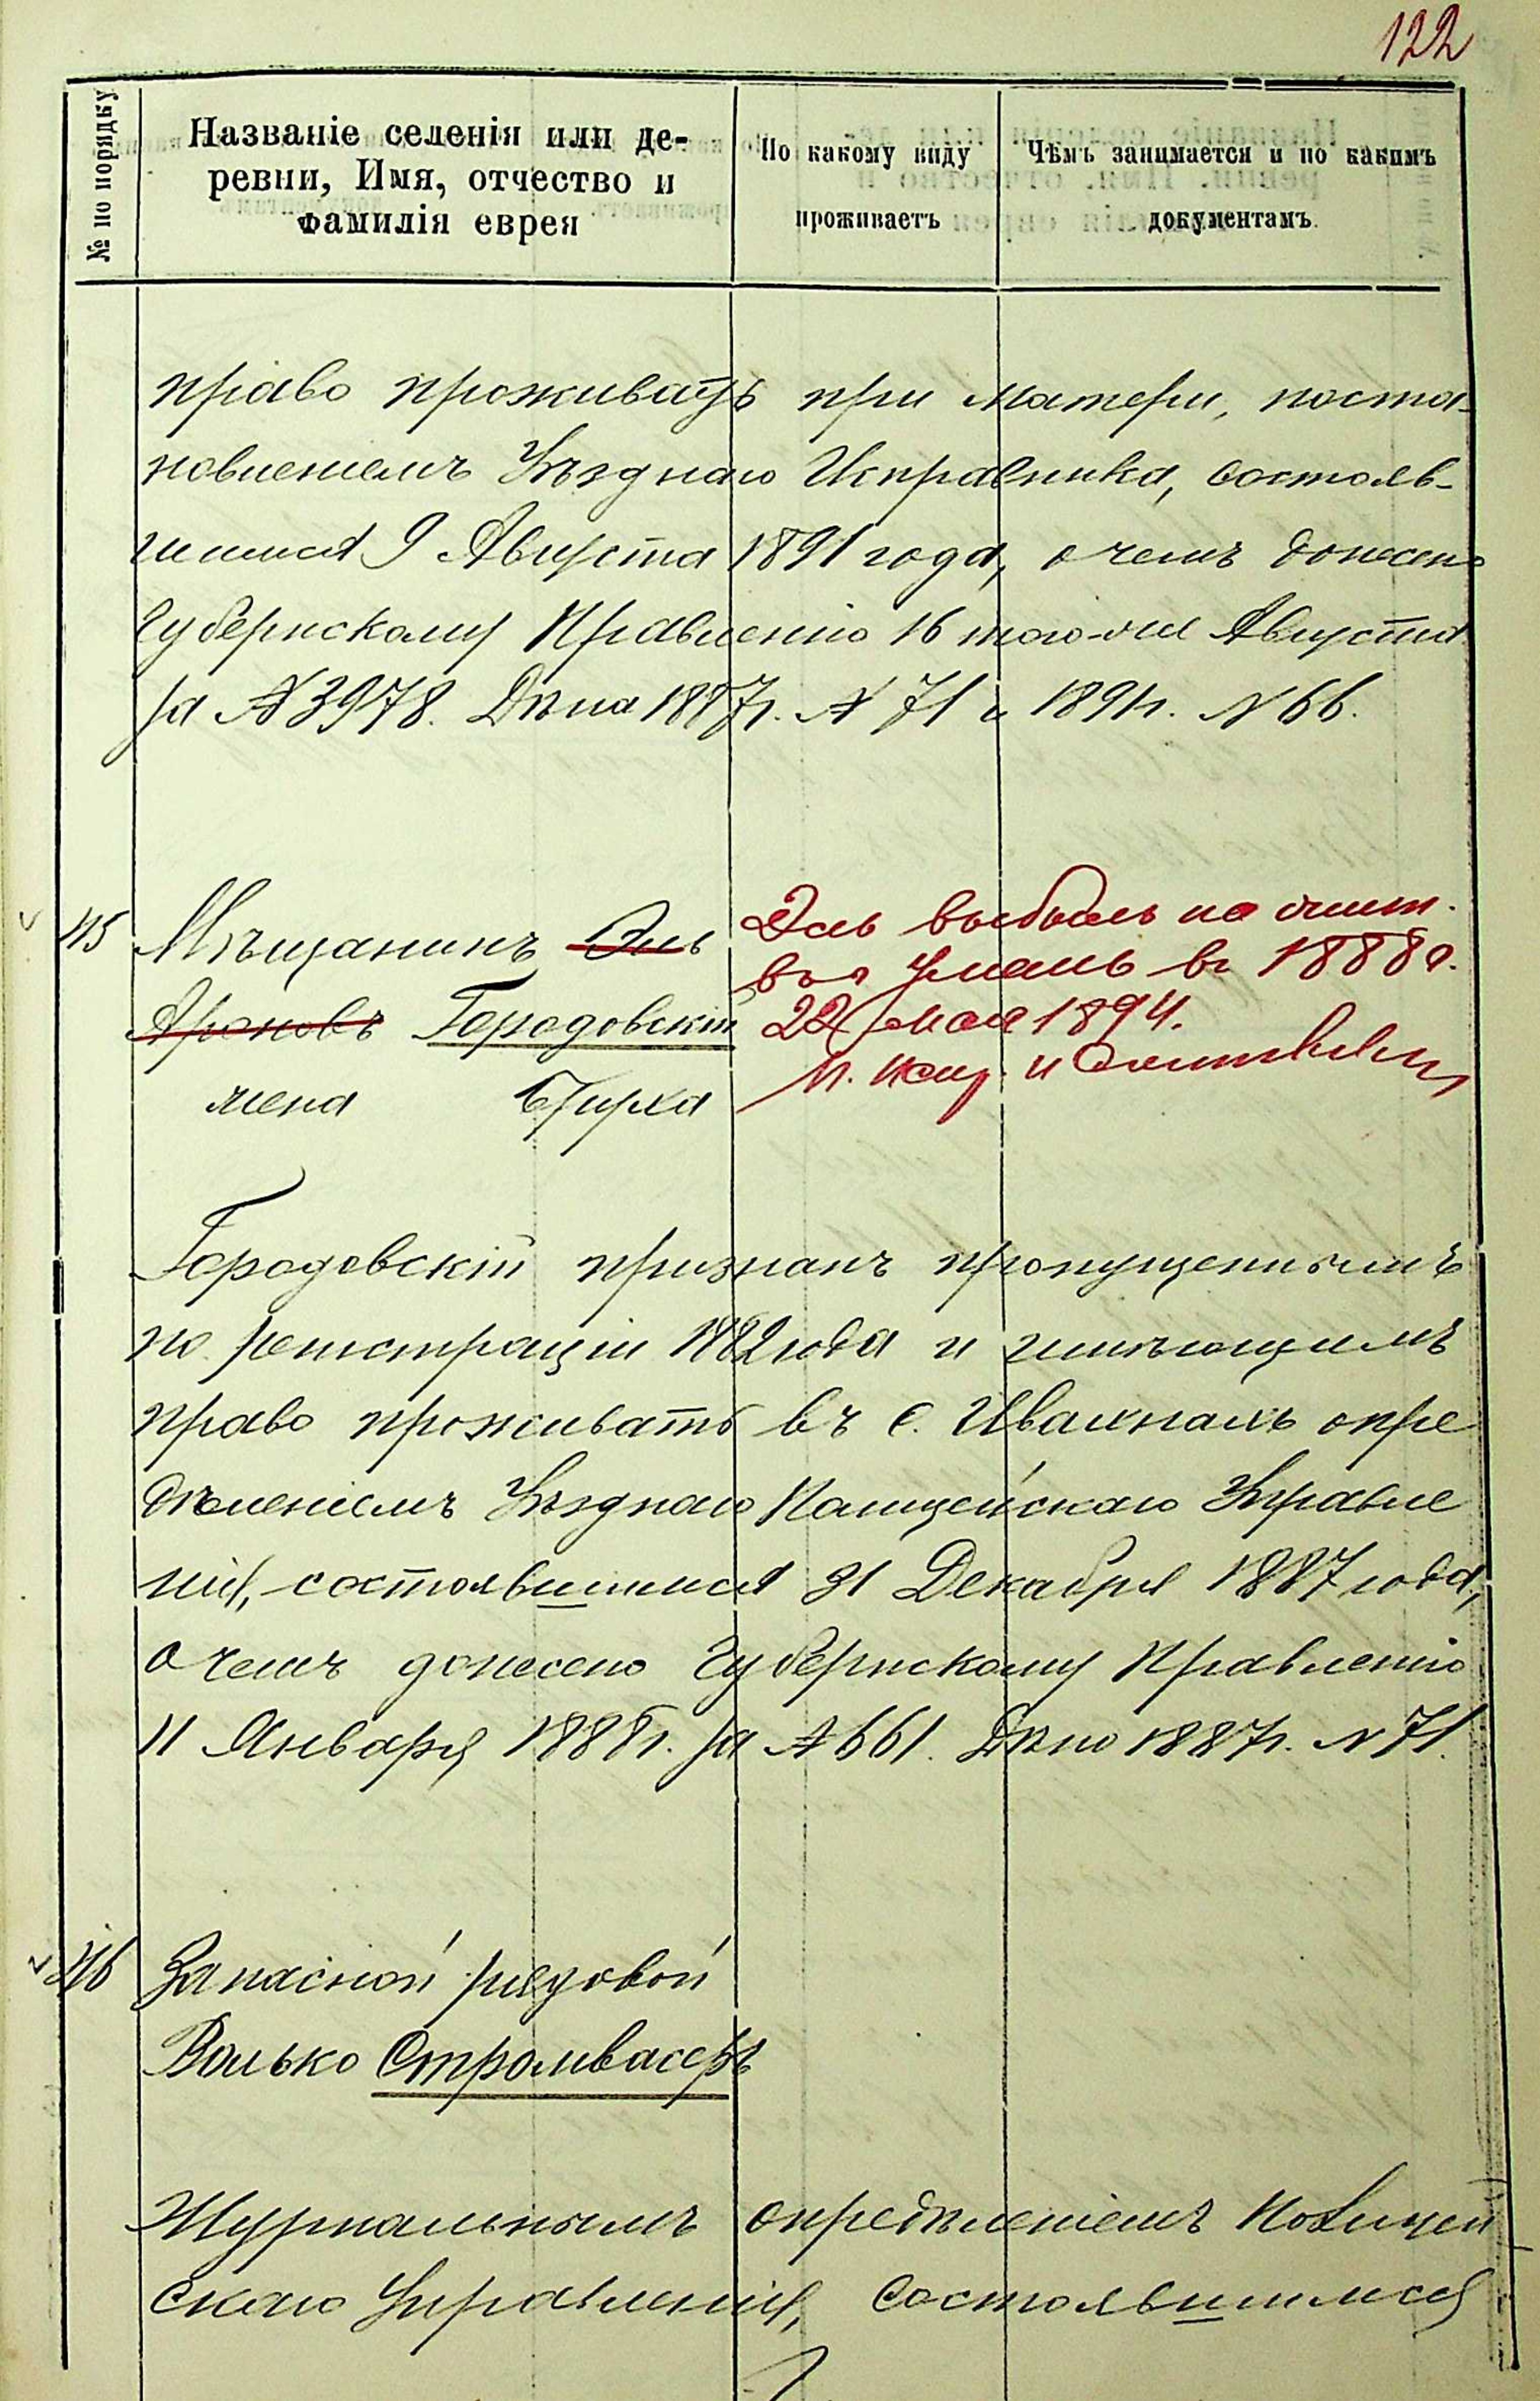 122
№ по порядку
Названіе селенія или де-
ревни, Имя, отчество и
фамилія еврея
По какому виду
проживаетъ
Чѣмъ занимается и по какимъ
документамъ.
право проживать при матери, поста-
новленіемъ Уѣзднаго Исправника, состояв-
шимся 9 Августа 1891 года, о чемъ донесено
Губернскому Правленію 16 того-же Августа
за № 3978. Дѣла 1887 г. № 71 и 1891 г. № 66.
45 Мѣщанинъ Эль
Ароновъ Городовскій
жена Бурха
Эль выбылъ на жит.
въ г Умань въ 1888 г.
22 мая 1894.
Городовскій признанъ пропущеннымъ
по регистраціи 1882 года и имѣющимъ
право проживать въ с. Ивахнахъ опре
дѣленіемъ Уѣзднаго Полицейскаго Управле
нія, состоявшимся 31 Декабря 1887 года,
о чемъ донесено Губернскому Правленію
11 Января 1888 г. за № 661. Дѣло 1887 г. № 71.
46 Запасной рядовой
Волько Стромвасеръ
Журнальнымъ опредѣленіемъ Полицей
скаго Управленія, состоявшимся